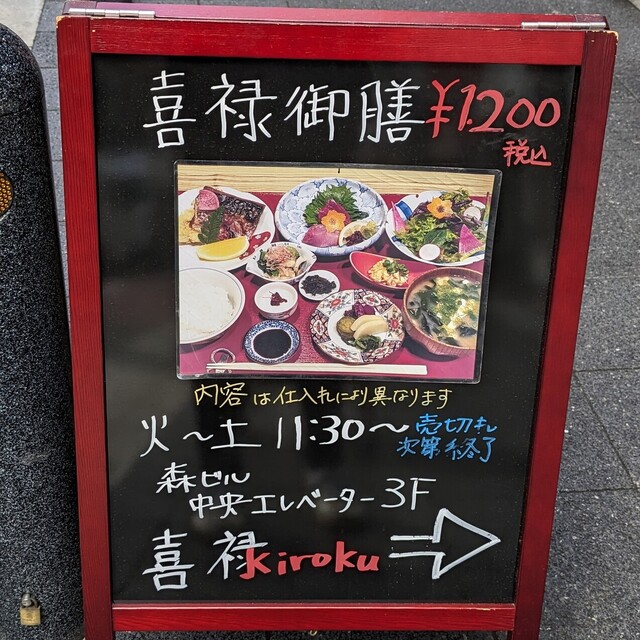 喜禄御膳 ¥1.200
税込
内容は仕入れにより異なります
火〜土 11:30〜 売切れ
次第終了
森ビル
中央エレベーター 3F
喜禄 kiroku